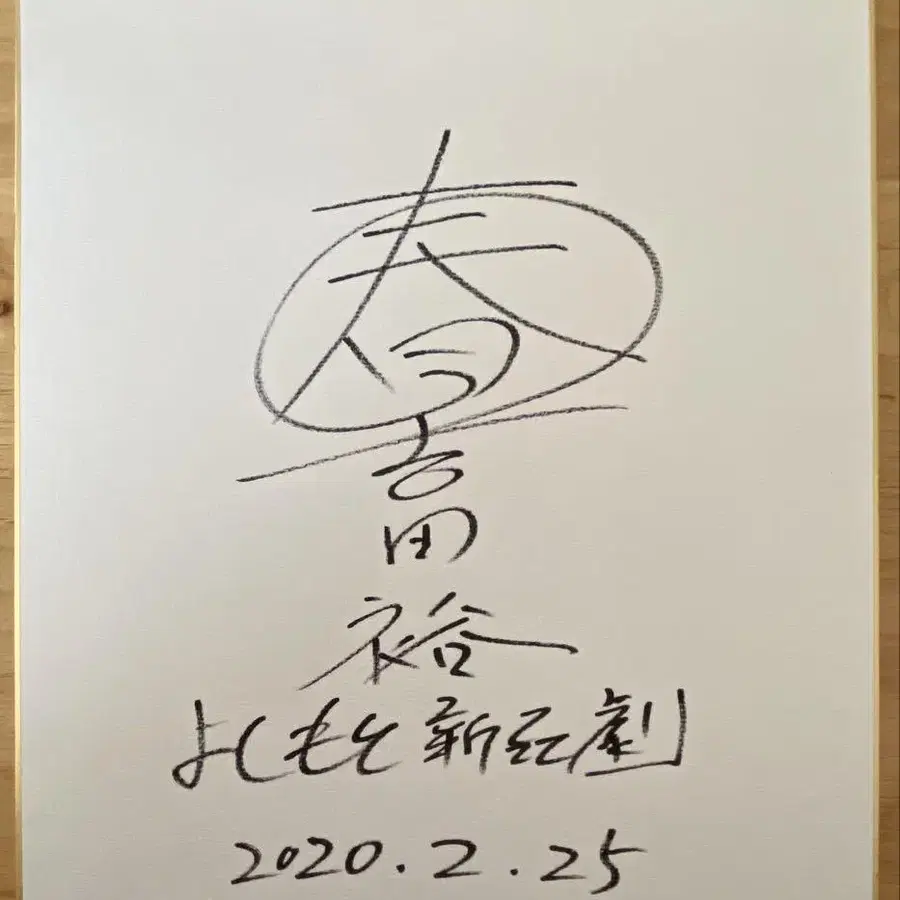 吉田裕
よしもと新喜劇
2020.2.25